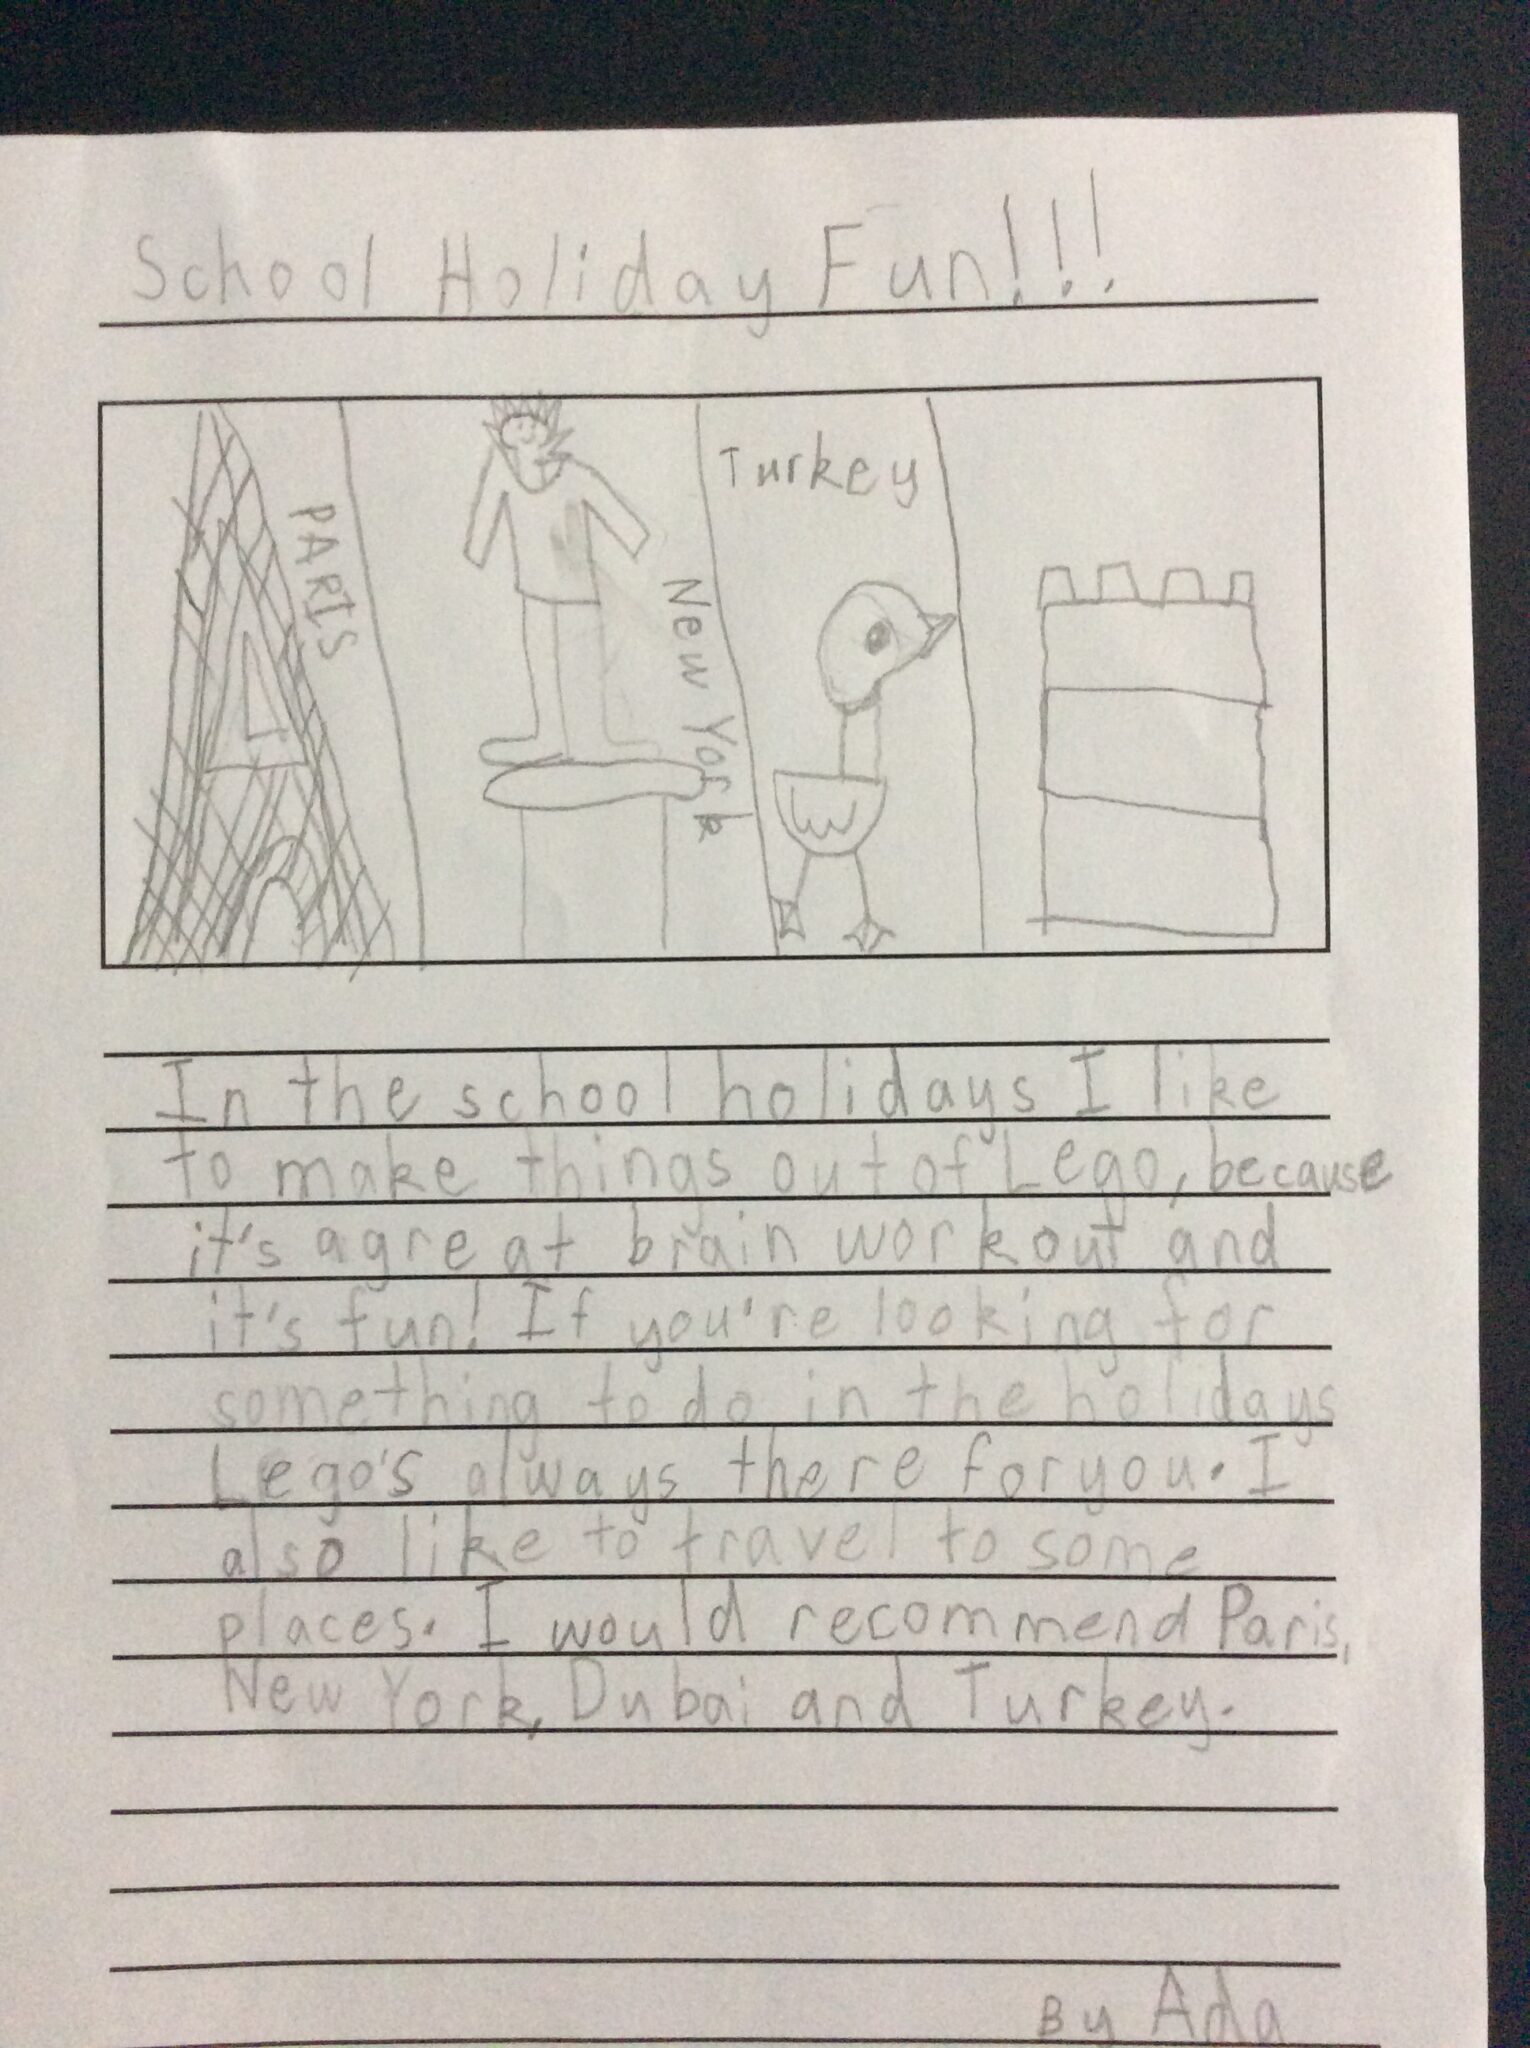 School Holiday Fun!!!
PARIS
New York
Turkey
In the school holidays I like
to make things out of Lego, because
it's a great brain workout and
it's fun! If you're looking for
something to do in the holidays
Lego's always there for you. I
also like to travel to some
places. I would recommend Paris,
New York, Dubai and Turkey.
By Ada